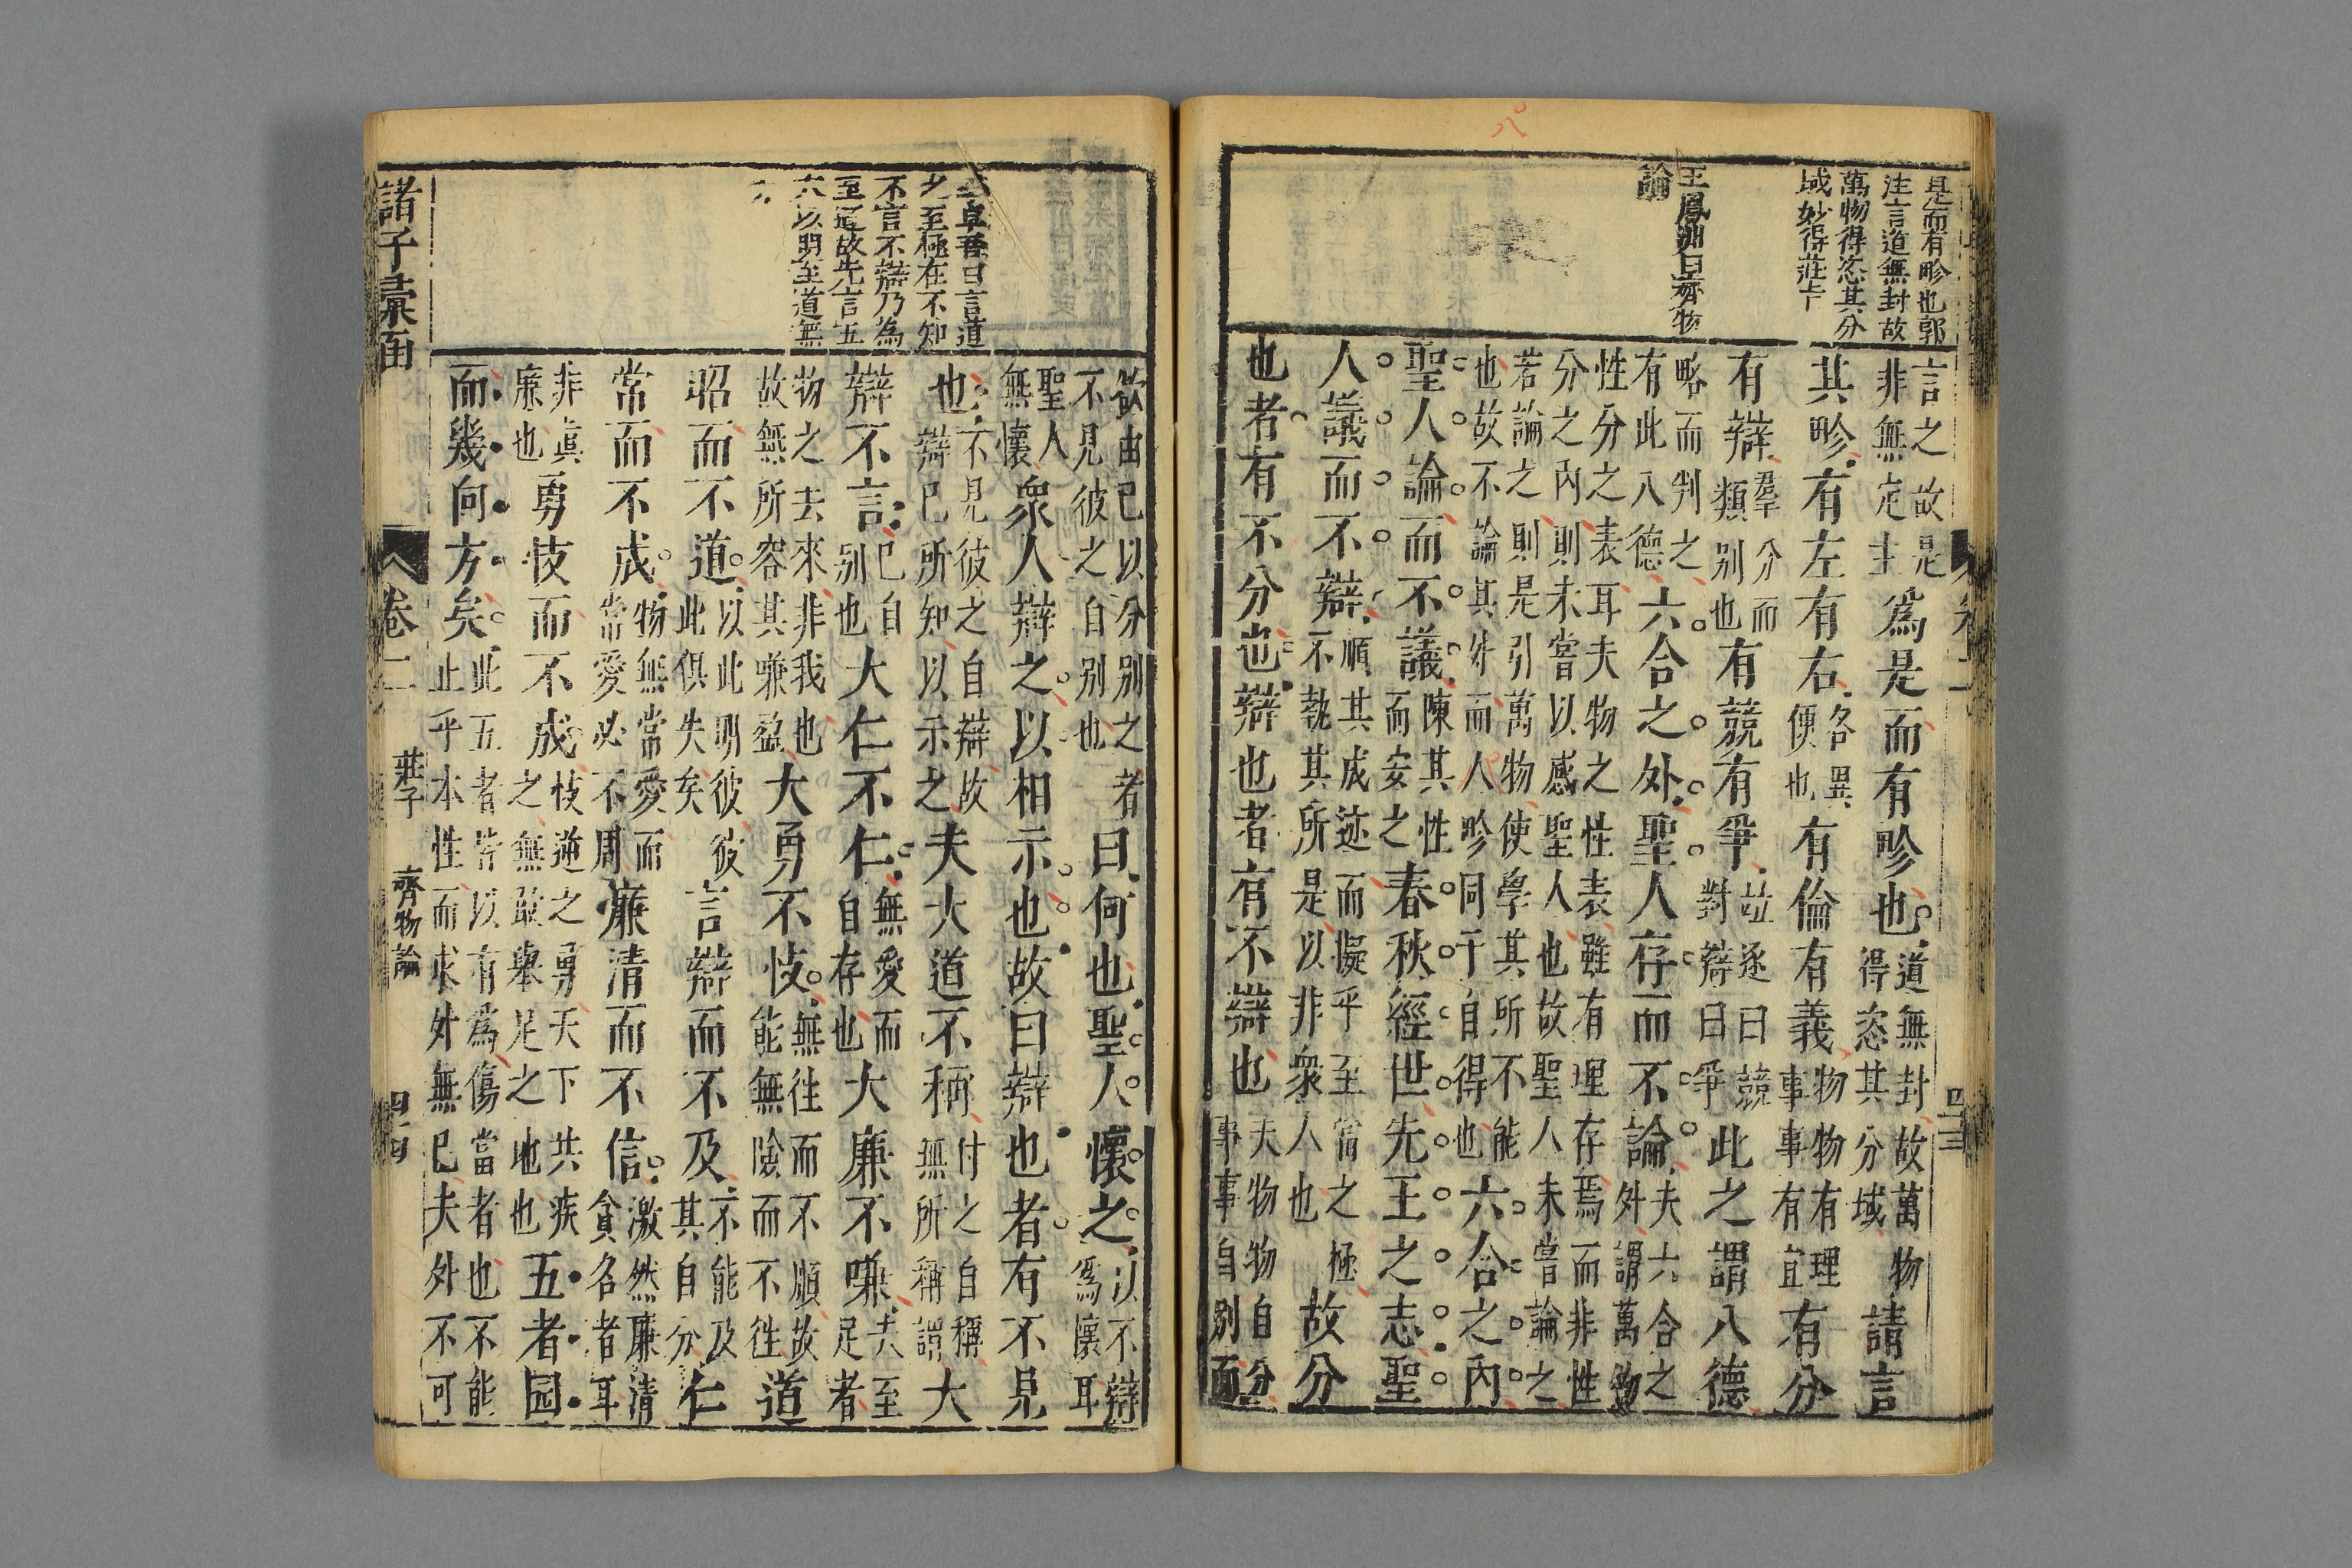 是而有畛也郭
注言道無封故
萬物得恣其分
域妙得莊旨
王鳳洲曰齊物
論
言之故是
非無定主
爲是而有畛也
道無封故萬物
得恣其分域
請言
其畛有左有右
各異
便也
有倫有義
物物有理
事事有宜
有分
有辯
羣分而
類別也
有競有爭
並逐曰競
對辯曰爭
此之謂八德
略而判之
有此八德
六合之外聖人存而不論
夫六合之
外謂萬物
性分之表耳夫物之性表雖有理存焉而非性
分之內則未嘗以感聖人也故聖人未嘗論之
若論之則是引萬物使學其所不能
也故不論其外而八畛同于自得也
六合之內
聖人論而不議
陳其性
而安之
春秋經世先王之志聖
人議而不辯
順其成迹而凝乎至當之極
不執其所是以非衆人也
故分
也者有不分也辯也者有不辯也
夫物物自分
事事自別而
欲由己以分別之者
不見彼之自別也
曰何也聖人懷之
以不辯
爲懷耳
聖人
無懷
衆人辯之以相示也故曰辯也者有不見
也
不見彼之自辯故
辯己所知以示之
夫大道不稱
付之自稱
無所稱謂
大
辯不言
已自
別也
大仁不仁
無愛而
自存也
大廉不嗛
夫至
足者
物之去來非我也
故無所容其嗛盈
大勇不忮
無往而不順故
能無險而不往
道
昭而不道
以此明彼彼
此俱失矣
言辯而不及
不能及
其自分
仁
常而不成
物無常愛而
常愛必不周
廉清而不信
激然廉清
貪名者耳
非眞
廉也
勇忮而不成
忮逆之勇天下共疾
之無敢舉足之地也
五者园
而幾向方矣
此五者皆以有爲傷當者也不能
止乎本性而求外無已夫外不可
李卓吾曰言道
之至極在不知
不言不辯乃為
至道故先言五
大以明至道無
諸子彙函
卷二
莊子
齊物論
四十四